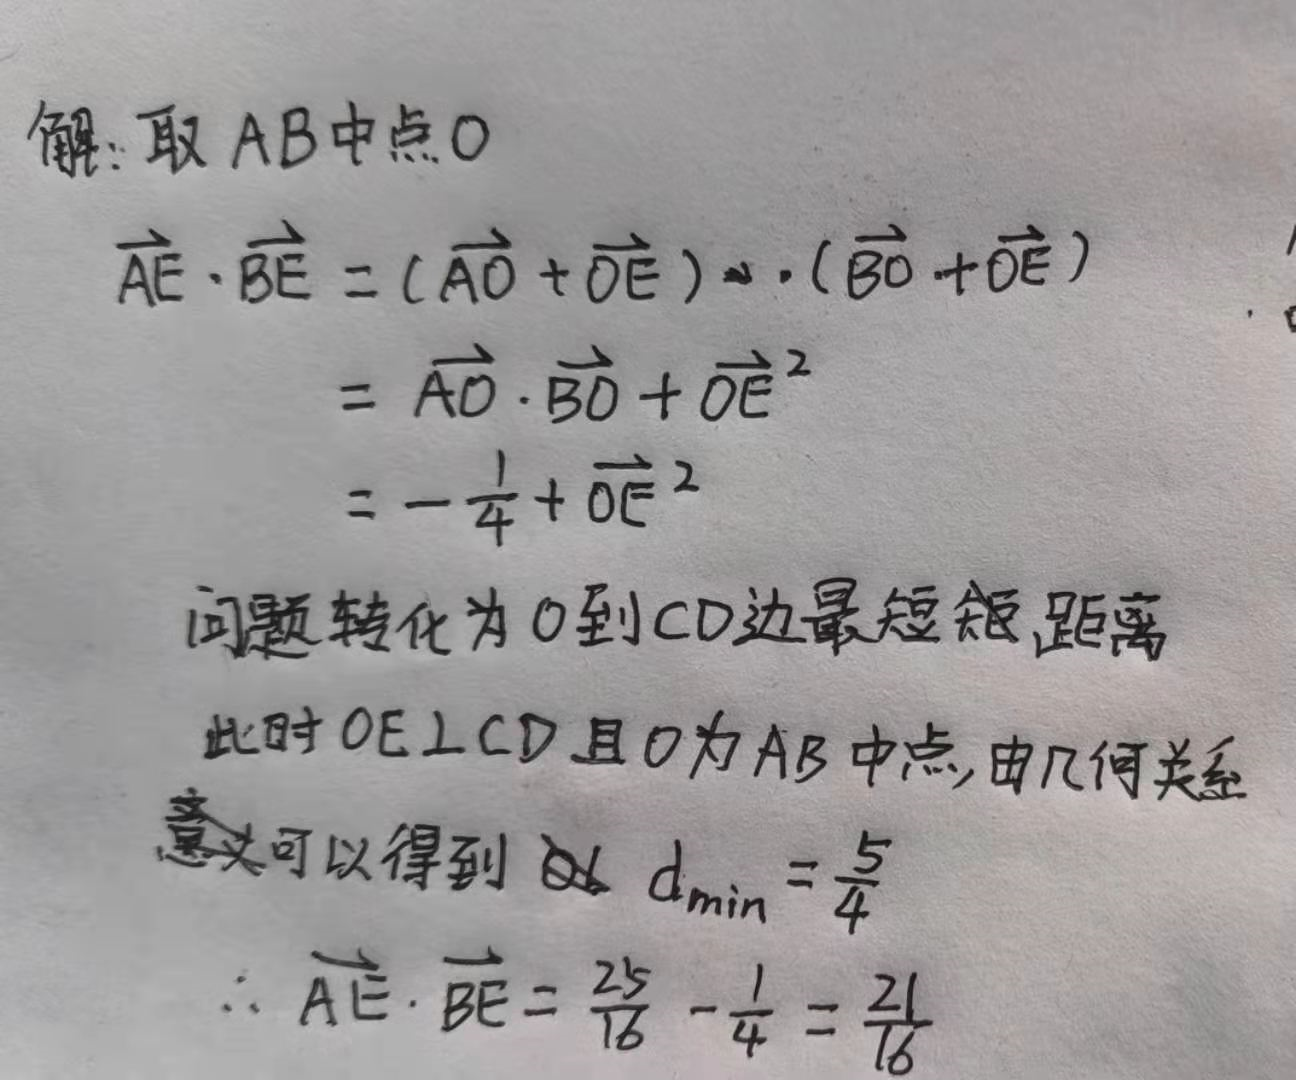 解：取AB中点O
AE·BE=(AO+OE)·(BO+OE)
=AO·BO+OE²
=-1/4+OE²
问题转化为O到CD边最短距离
此时OE⊥CD且O为AB中点，由几何关系
可以得到 dmin=5/4
∴AE·BE=25/16-1/4=21/16